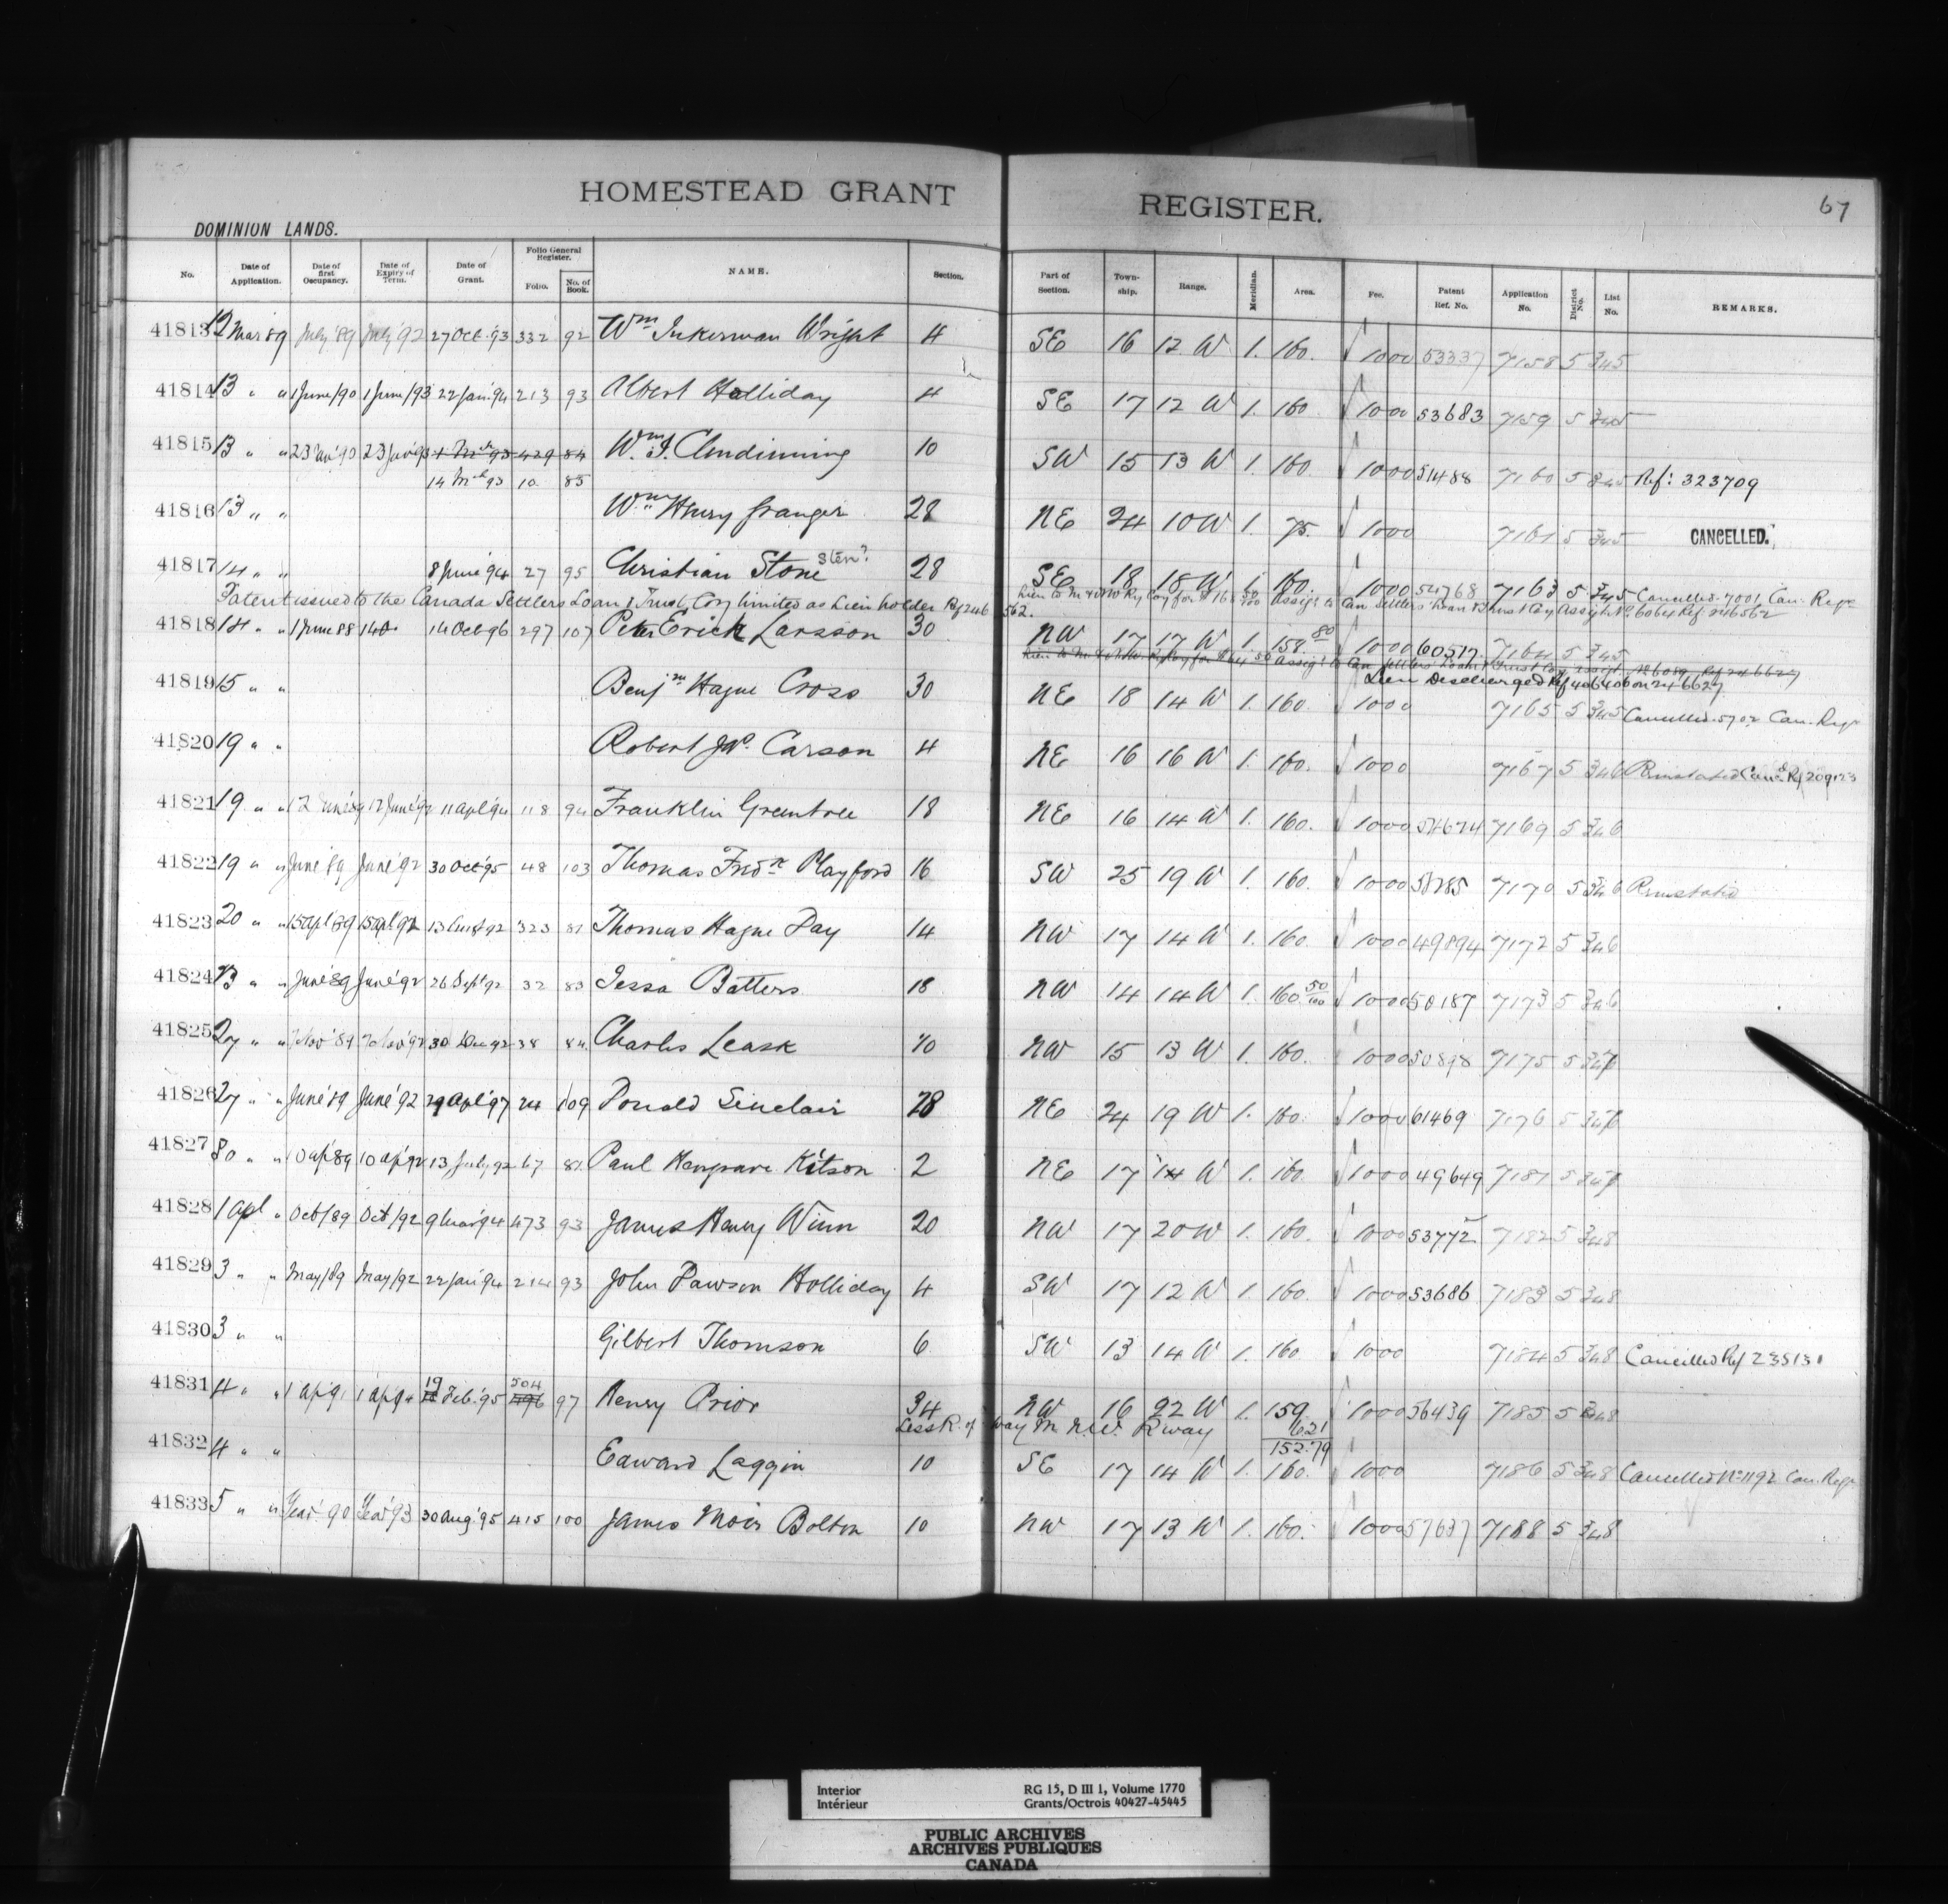 HOMESTEAD GRANT REGISTER. 67
DOMINION LANDS.
No. Date of Application. Date of first Occupancy. Date of Expiry of Term. Date of Grant. Folio General Register. Folio. No. of Book. NAME. Section. Part of Section. Town-ship. Range. Meridian. Area. Fee. Patent Ref. No. Application No. District No. List No. REMARKS.
41813 12 Mar 89 July '89 July '92 27 Oct. '93 332 92 Wm Inkerman Wright 4 SE 16 12 W 1. 160. 1000 53337 7158 5 345
41814 13 " " 1 June/90 1 June/93 22 Jan '94 213 93 Albert Holliday 4 SE 17 12 W 1. 160 1000 53683 7159 5 345
41815 13 " " 429 84 Wm J. Clendinning 10 SW 15 13 W 1. 160. 1000 51488 7160 5 345 Ref: 323709
14 Mch 93 10 85
41816 13 " " Wm Henry Granger 28 NE 24 10 W 1. 75. 1000 7161 5 345 CANCELLED.
41817 14 " " 8 June '94 27 95 Christian Stone Sten? 28 SE 18 18 W 1. 160. 1000 54768 7163 5 345 Cancelled 7001 Can. Regr
Patent issued to the Canada Settlers Loan & Trust Coy limited as Lien holder Ref 246562.
Lien to M & NW Ry Coy for $ assigd to Can. Settlers Loan & Trust Coy Assigt No. 6064 Ref. 246562
41818 14 " " 1 June 88 140 14 Oct 96 297 107 Peter Erick Larsson 30 NW 17 17 W 1. 158.80 1000 60517 7164 5 345
Lien Discharged Ref 406406 on 246627
41819 15 " " Benjn Hague Cross 30 NE 18 14 W 1. 160. 1000 7165 5 345 Cancelled 5702 Can. Regr
41820 19 " " Robert Jno. Carson 4 NE 16 16 W 1. 160. 1000 7167 5 346 Reinstated Cancd Rf 209123
41821 19 " " 12 June '89 12 June '92 11 Apl '94 118 94 Franklin Greentree 18 NE 16 14 W 1. 160. 1000 54674 7169 5 346
41822 19 " " June '89 June '92 30 Oct '95 48 103 Thomas Fredk Playford 16 SW 25 19 W 1. 160. 1000 58285 7170 5 346 Reinstated
41823 20 " " 15 Apl '89 15 Apl '92 13 92 323 81 Thomas Hague Day 14 NW 17 14 W 1. 160. 1000 49894 7172 5 346
41824 23 " " June '89 June '92 26 Sept '92 32 83 Jessa Batters 18 NW 14 14 W 1. 160 50/100 1000 50187 7173 5 346
41825 27 " " 7 Nov '89 7 Nov '92 30 Dec 92 38 84 Charles Leask 10 NW 15 13 W 1. 160. 1000 50898 7175 5 347
41826 27 " " June '89 June '92 29 Apl '97 24 109 Donald Sinclair 28 NE 24 19 W 1. 160. 1000 61469 7176 5 347
41827 30 " " 10 Ap '89 10 Ap '92 13 July 92 67 81 Paul Hargrave Kitson 2 NE 17 14 W 1. 160. 1000 49649 7181 5 347
41828 1 Apl " Oct/89 Oct/92 9 Mar '94 473 93 James Henry Winn 20 NW 17 20 W 1. 160. 1000 53772 7182 5 348
41829 3 " " May/89 May/92 22 Jan '94 214 93 John Dawson Holliday 4 SW 17 12 W 1. 160. 1000 53686 7183 5 348
41830 3 " " Gilbert Thomson 6 SW 13 14 W 1. 160 1000 7184 5 348 Cancelled Rf 235131
41831 4 " " 1 Ap '91 1 Ap '94 19 Feb. '95 504 97 Henry Prior 34 NW 16 22 W 1. 159. 1000 56439 7185 5 348
Less R. of Way M. N.W. Rway 6.21
152.79
41832 4 " " Edward Laggin 10 SE 17 14 W 1. 160. 1000 7186 5 348 Cancelled No 1192 Can. Regr
41833 5 " " Year '90 Year '93 30 Aug. '95 415 100 James Moir Bolton 10 NW 17 13 W 1. 160. 1000 57637 7188 5 348
Interior RG 15, D III 1, Volume 1770
Intérieur Grants/Octrois 40427-45445
PUBLIC ARCHIVES
ARCHIVES PUBLIQUES
CANADA